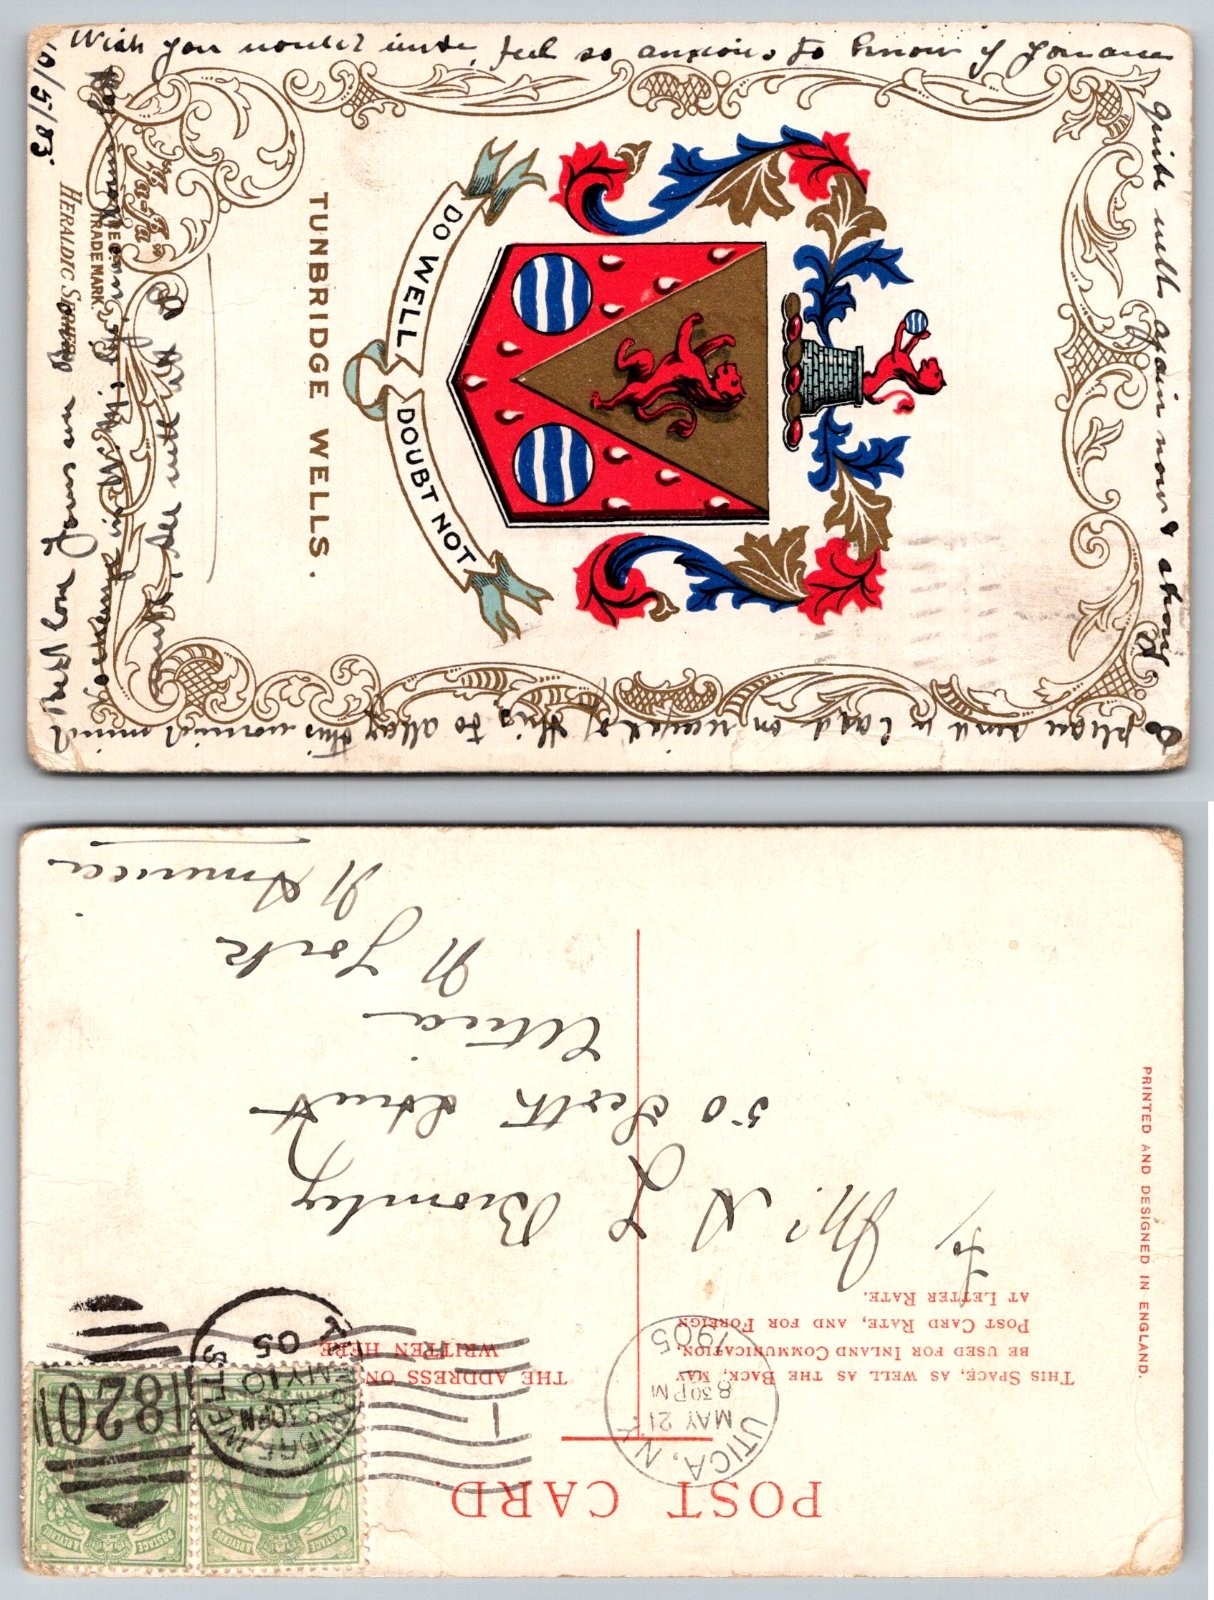 Wish you would write, feel so anxious to know if you are
quite well again now & strong
& please send a card on receipt of this to allay this worried mind
Best love Yours
10/5/05
All well
DO WELL DOUBT NOT
TUNBRIDGE WELLS.
"Ja-Ja"
TRADE MARK.
HERALDIC SERIES
POST CARD.
THIS SPACE, AS WELL AS THE BACK, MAY
BE USED FOR INLAND COMMUNICATION,
POST CARD RATE, AND FOR FOREIGN
AT LETTER RATE.
THE ADDRESS ON
WRITTEN HERE
To
Mr A L Bromley
50 Scott Street
Utica
N York
N America
UTICA, N.Y.
MAY 21
8 30 PM
1905
TUNBRIDGE WELLS
8.30 PM
MY 10
05
820
1
POSTAGE & REVENUE
POSTAGE & REVENUE
PRINTED AND DESIGNED IN ENGLAND.